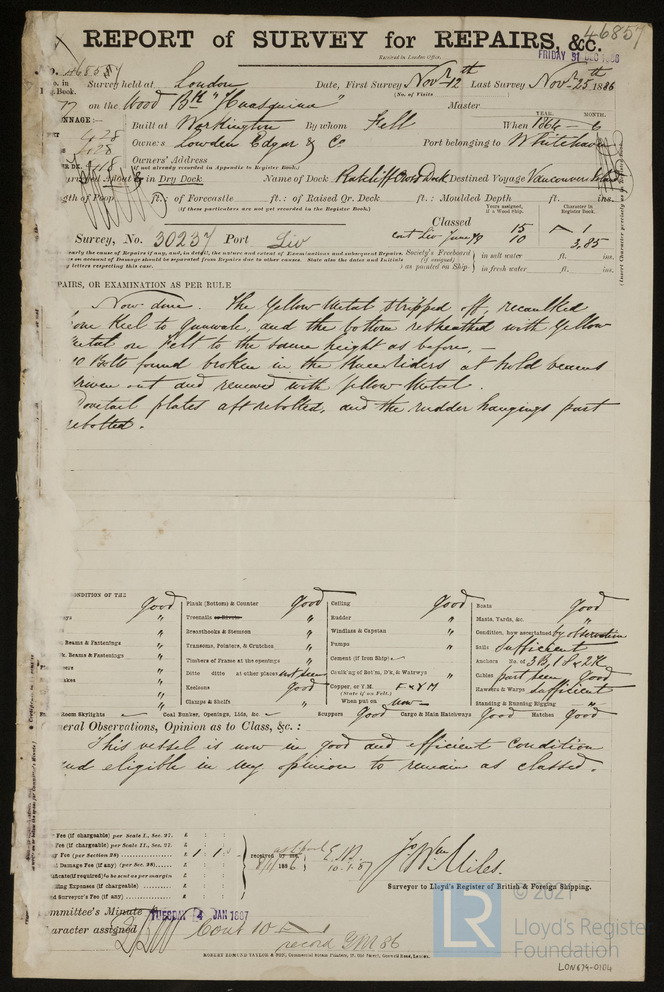 46857
REPORT of SURVEY for REPAIRS, &c.
Received in London Office,
FRIDAY 31 DEC 1886
No. 46857
No. in Survey held at London Date, First Survey Novr 12th Last Survey Novr 25th 1886
Reg. Book. (No. of Visits
77 on the Wood Bk "Huasquina" Master
TONNAGE:— YEAR. MONTH.
428 Built at Workington By whom Fell When 1864–6
428 Owners Lowden Edgar & Co Port belonging to Whitehaven
Owners' Address
(if not already recorded in Appendix to Register Book.)
in Dry Dock Name of Dock Ratcliff Cross Dock Destined Voyage Vancouver Island
Length of Poop ft.: of Forecastle ft.: of Raised Qr. Deck ft.: Moulded Depth ft. ins.
(If these particulars are not yet recorded in the Register Book.)
Years assigned, if a Wood Ship. Character in Register Book.
Classed 15 A 1
Survey, No. 30237 Port Liv cont Liv June 79 10 3,85
Society's Freeboard (if assigned) as painted on Ship in salt water ft. ins.
in fresh water ft. ins.
PAIRS, OR EXAMINATION AS PER RULE
Now done. The Yellow Metal stripped off, recaulked
Keel to Gunwale, and the bottom resheathed with Yellow
Metal on Felt to the same height as before,—
Bolts found broken in the Knee Riders at hold beams
driven out and renewed with Yellow Metal.
Dovetail plates aft rebolted, and the rudder hangings part
rebolted.
CONDITION OF THE
good Plank (Bottom) & Counter good Ceiling good Boats good
" Treenails or Rivets " Rudder " Masts, Yards, &c. "
" Breasthooks & Stemson " Windlass & Capstan " Condition, how ascertained by observation
Beams & Fastenings " Transoms, Pointers, & Crutches " Pumps " Sails Sufficient
Beams & Fastenings " Timbers of Frame at the openings " Cement (if Iron Ship) Anchors No. of 3 B, 1 S & 2 K
" Ditto ditto at other places not seen Caulking of Bot'm, D'k, & Watrwys " Cables part seen Good
" Keelsons Good Copper, or Y.M. F & Y M Hawsers & Warps sufficient
(State if on Felt.)
" Clamps & Shelfs " When put on now Standing & Running Rigging "
Room Skylights Coal Bunker, Openings, Lids, &c. Scuppers Good Cargo & Main Hatchways Good Hatches Good
General Observations, Opinion as to Class, &c. :
This vessel is now in good and efficient condition
and eligible in my opinion to remain as classed.
Fee (if chargeable) per Scale I., Sec. 27. £ : :
Fee (if chargeable) per Scale II., Sec. 27. £ : :
Fee (per Section 28) £ 1 : 1 :
Damage Fee (if any) (per Sec. 28) £ : :
Travelling Expenses (if chargeable) £ : :
Second Surveyor's Fee (if any) £ : :
received by me,
1886
10.1.87
Jos Wm Miles.
Surveyor to Lloyd's Register of British & Foreign Shipping.
Committee's Minute TUESDAY 4 JAN 1887
Character assigned Cont 10 A 1
record YM 86
MOBLEY EDMUND TAYLOR & SON, Commercial Steam Printers,
© 2021
LR Lloyd's Register
Foundation
LON674-0184